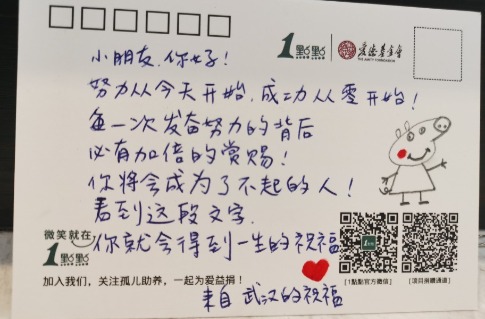 1點點
爱德基金會
小朋友,你好!
努力从今天开始,成功从零开始!
每一次发奋努力的背后
必有加倍的赏赐!
你将会成为了不起的人!
看到这段文字.
你就会得到一生的祝福
微笑就在
1點點
加入我们,关注孤儿助养,一起为爱益捐!
[1點點官方微信]
[项目捐赠通道]
来自武汉的祝福